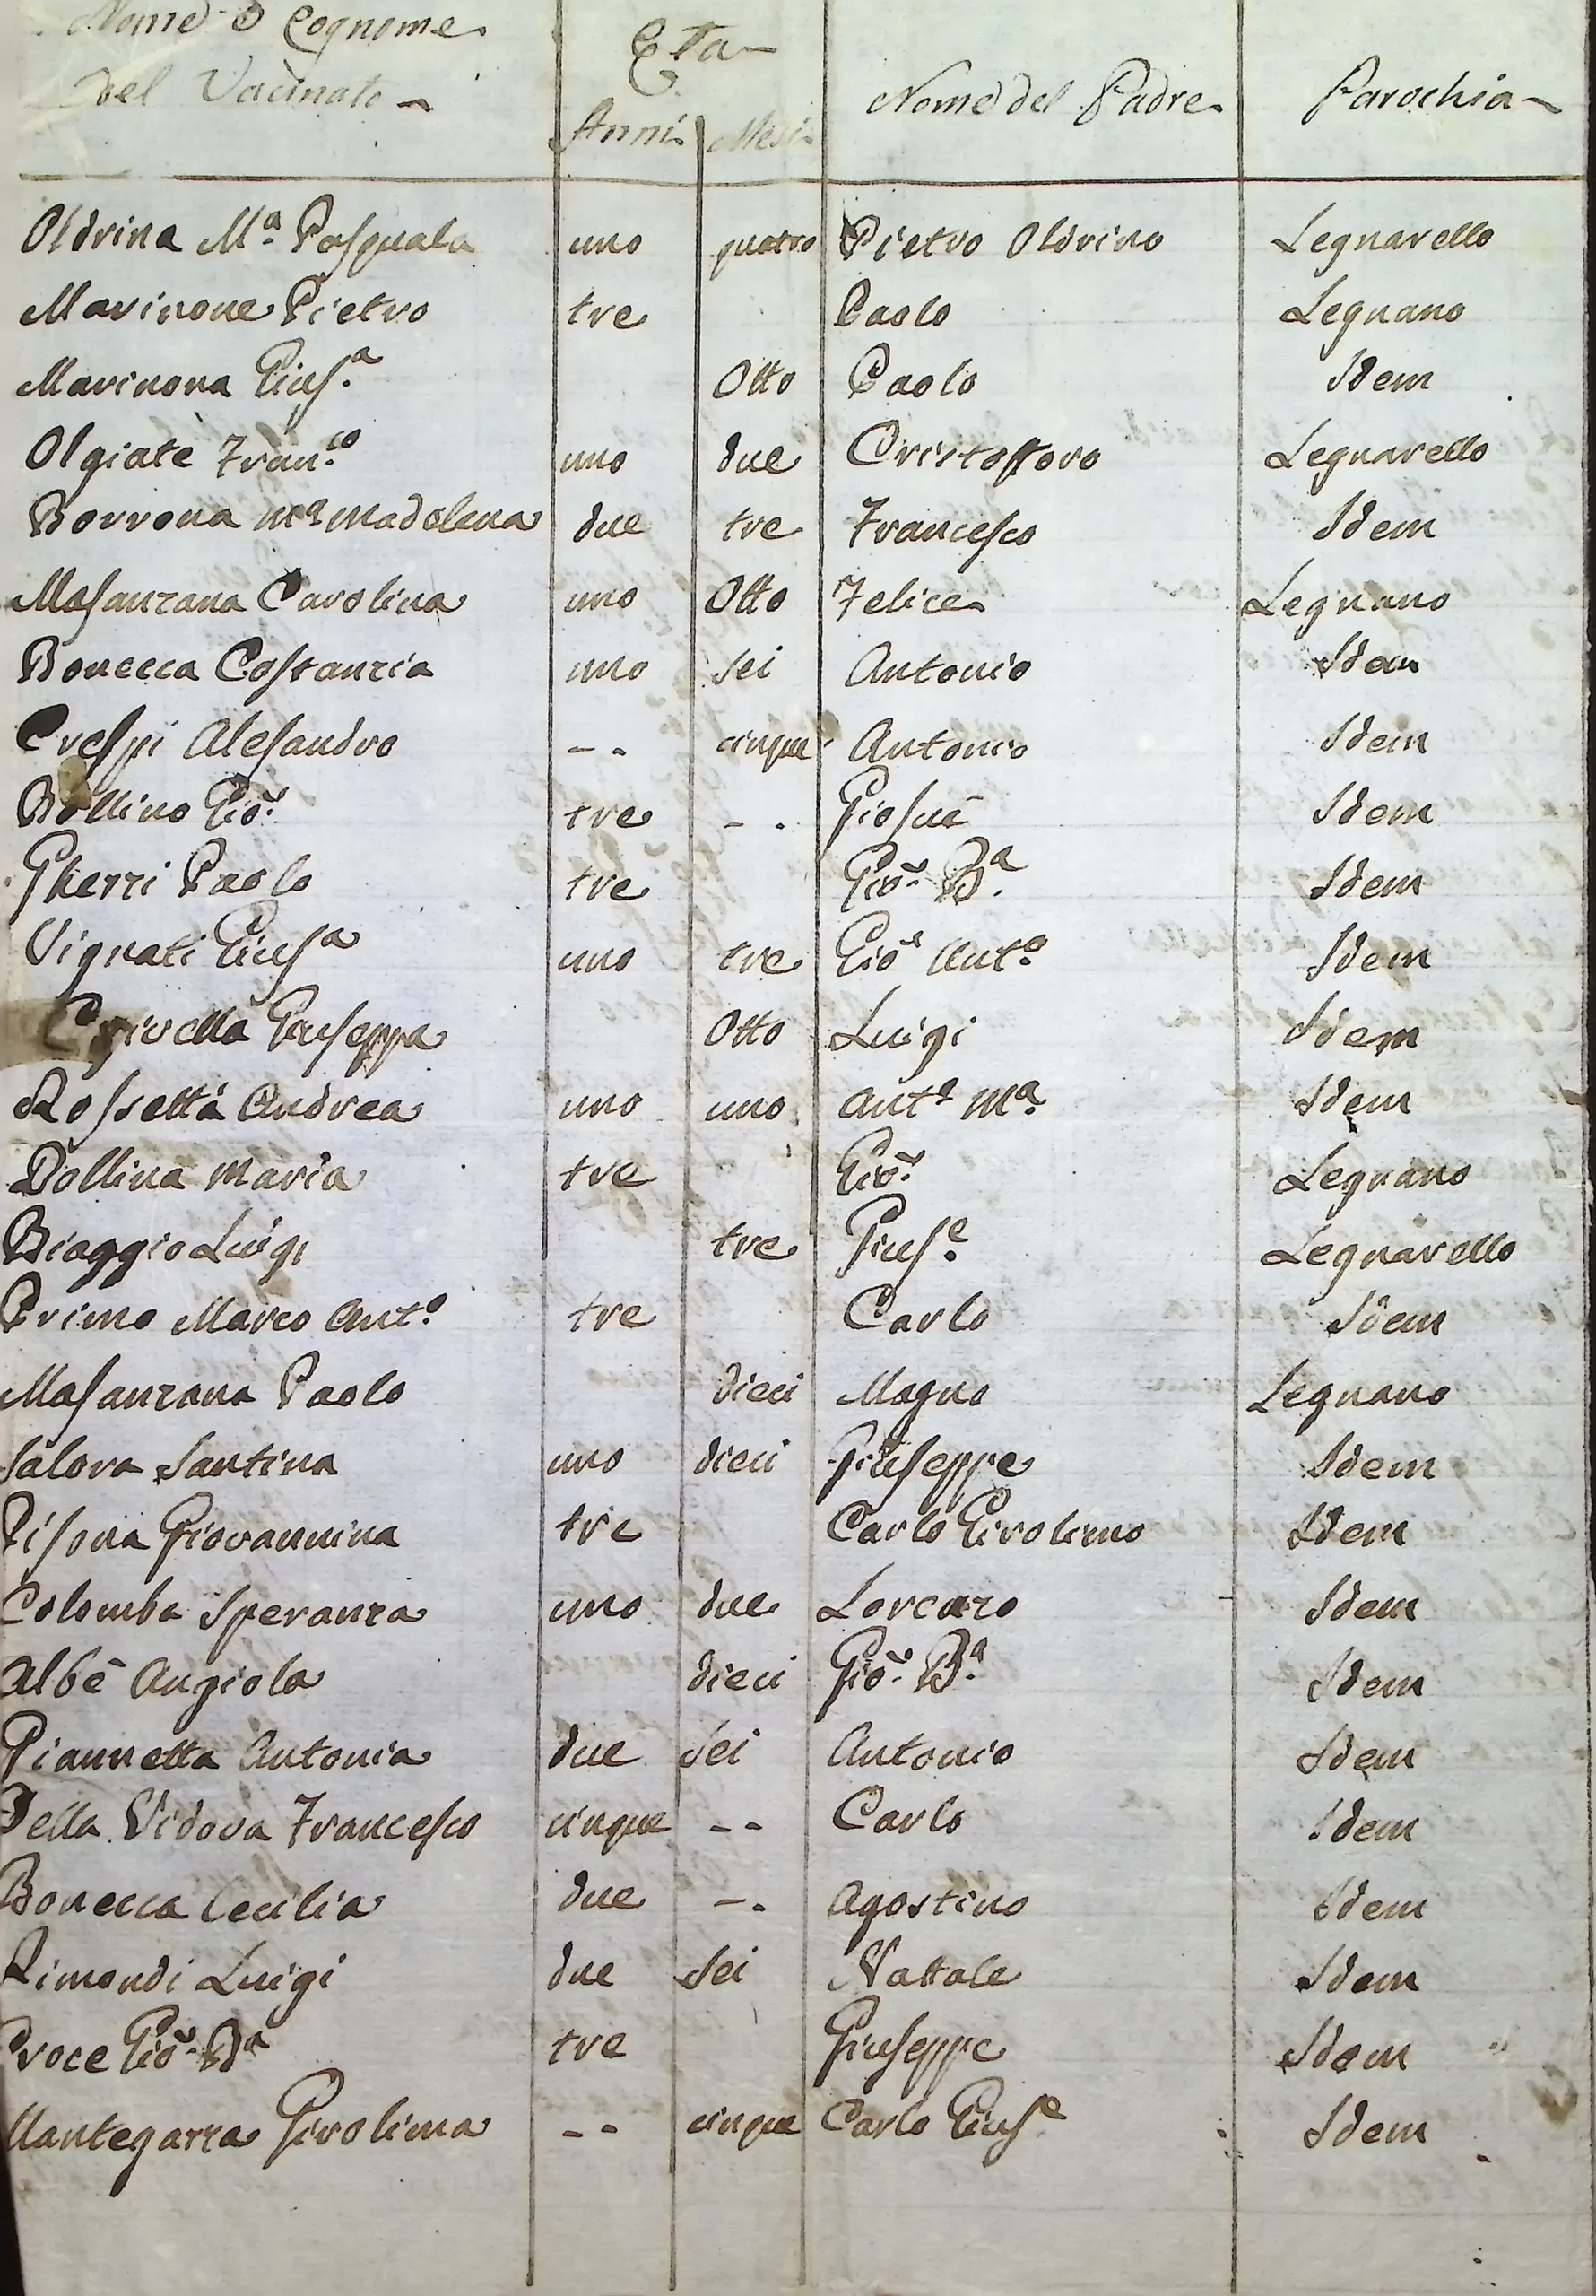 Nome e Cognome Età Nome del Padre Parochia
del Vacinato Anni Mesi
Oldrina M.ª Pasquala uno quatro Pietro Oldrino Legnarello
Marinone Pietro tre Paolo Legnano
Marinona Gius.ª Otto Paolo Idem
Olgiate Fran.co uno due Cristofforo Legnarello
Borrona M.ª Madalena due tre Francesco Idem
Masanzana Carolina uno Otto Felice Legnano
Bonecca Costanzia uno sei Antonio Idem
Crespi Alesandro -- cinque Antonio Idem
Bollino Gio. tre -- Giosuè Idem
Gherzi Paolo tre Gio. B.ª Idem
Vignati Gius.ª uno tre Gio. Ant.º Idem
Crivella Giuseppa Otto Luigi Idem
Rossetta Andrea uno uno Ant.º M.ª Idem
Dollina Maria tre Gio. Legnano
Biaggio Luigi tre Gius.e Legnarello
Primo Marco Ant.º tre Carlo Idem
Masanzana Paolo dieci Magno Legnano
Salora Santina uno dieci Giuseppe Idem
Pisona Giovannina tre Carlo Girolimo Idem
Colomba Speranza uno due Lorenzo Idem
Albè Angiola dieci Gio. B.ª Idem
Giannetta Antonia due sei Antonio Idem
Della Vidova Francesco cinque -- Carlo Idem
Bonecca Cecilia due -- Agostino Idem
Rimondi Luigi due sei Nattale Idem
Croce Gio. B.ª tre Giuseppe Idem
Mantegazza Girolima -- cinque Carlo Gius.e Idem